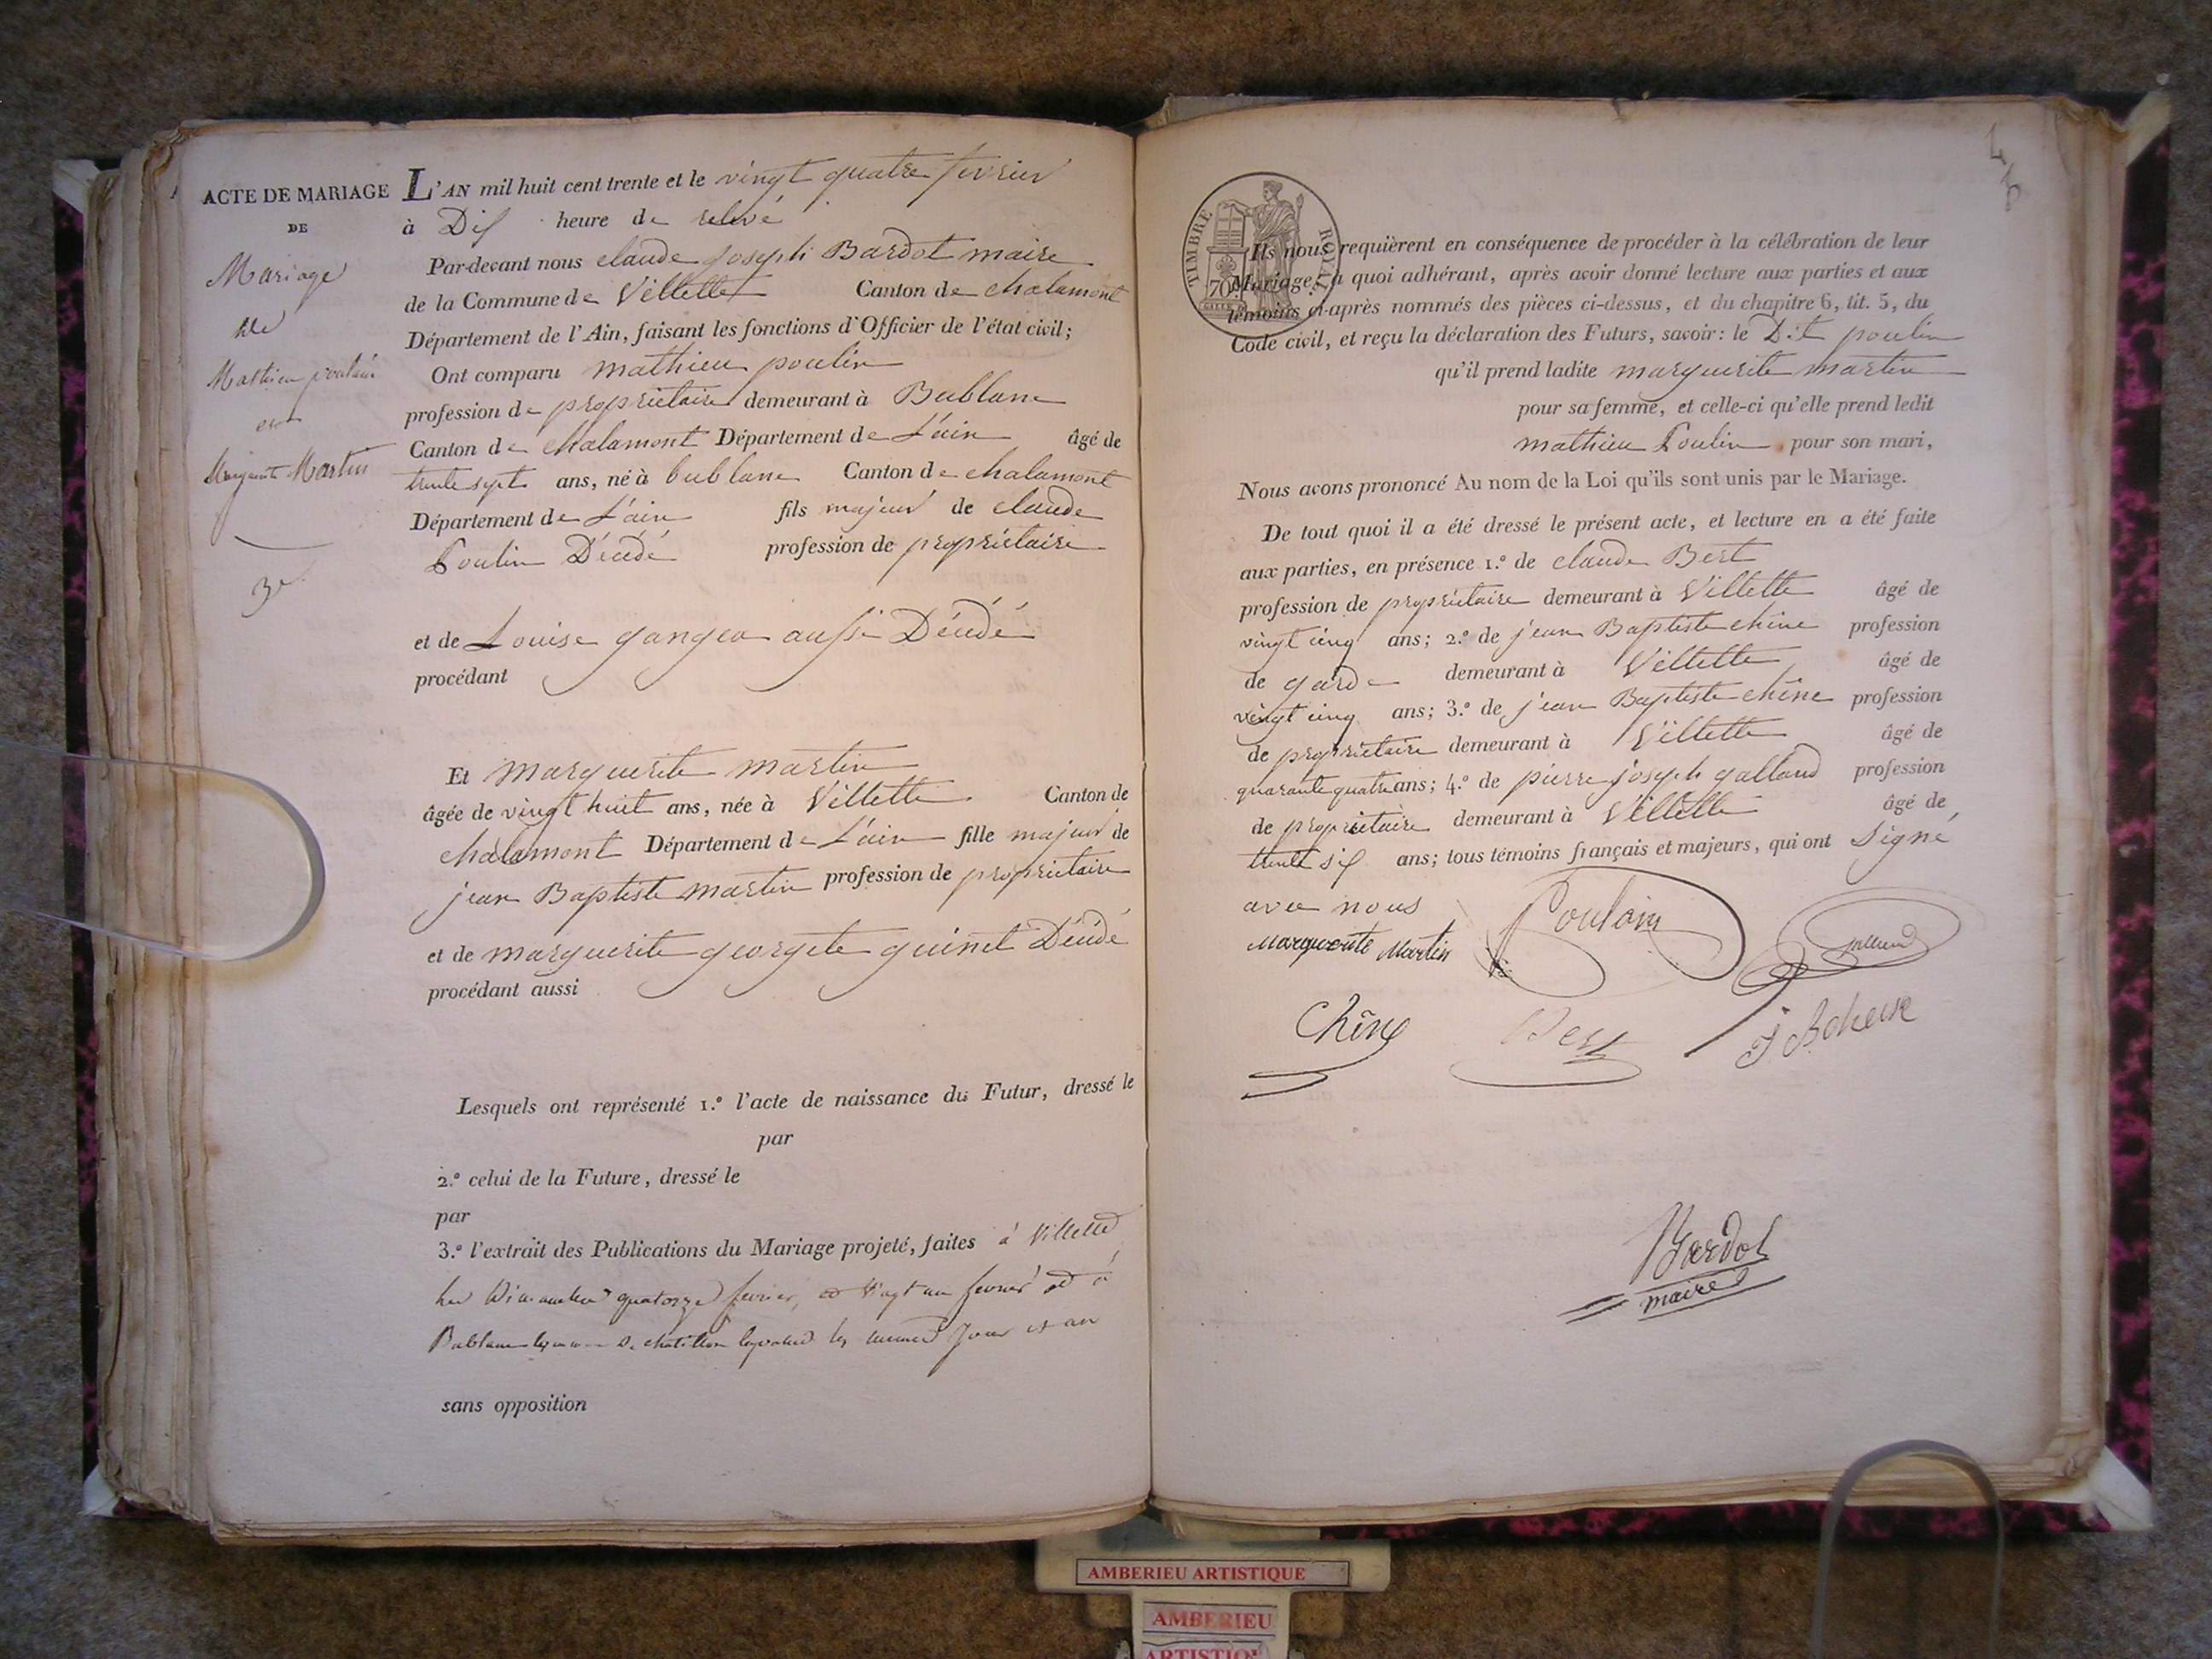 ACTE DE MARIAGE
DE
Mariage
de
Mathieu poulain
et
Margueritte Martin
3e
L'AN mil huit cent trente et le vingt quatre fevrier
à Dix heure de relevé
Par-devant nous claude joseph Bardot maire
de la Commune de Villette Canton de chalamont
Département de l'Ain, faisant les fonctions d'Officier de l'état civil;
Ont comparu mathieu poulin
profession de proprietaire demeurant à Bublane
Canton de chalamont Département de L'ain âgé de
trente sept ans, né à bublane Canton de chalamont
Département de L'ain fils majeur de claude
Poulin Décédé profession de propriétaire
et de Louise gangea aussi Décédé
procédant
Et marguerite martin
âgée de vingt huit ans, née à Villette Canton de
chalamont Département de L'ain fille majeur de
jean Baptiste martin profession de proprietaire
et de marguerite georgete guinet Décédé
procédant aussi
Lesquels ont représenté 1.º l'acte de naissance du Futur, dressé le
par
2.º celui de la Future, dressé le
par
3.º l'extrait des Publications du Mariage projeté, faites à Villette
les Dimanche quatorze fevrier, et Vingt un fevrier et à
Bublane de chatillon les memes Jour et an
sans opposition
TIMBRE ROYAL
70
Ils nous requièrent en conséquence de procéder à la célébration de leur
Mariage, à quoi adhérant, après avoir donné lecture aux parties et aux
témoins ci-après nommés des pièces ci-dessus, et du chapitre 6, tit. 5, du
Code civil, et reçu la déclaration des Futurs, savoir: le Dit poulin
qu'il prend ladite marguerite martin
pour sa femme, et celle-ci qu'elle prend ledit
mathieu Poulin pour son mari,
Nous avons prononcé Au nom de la Loi qu'ils sont unis par le Mariage.
De tout quoi il a été dressé le présent acte, et lecture en a été faite
aux parties, en présence 1.º de claude Bert
profession de propriétaire demeurant à Villette âgé de
vingt cinq ans; 2.º de jean Baptiste chêne profession
de garde demeurant à Villette âgé de
vingt cinq ans; 3.º de jean Baptiste chêne profession
de proprietaire demeurant à Villette âgé de
quarante quatre ans; 4.º de pierre joseph galland profession
de propriétaire demeurant à Villette âgé de
trente six ans; tous témoins français et majeurs, qui ont Signé
avec nous
Marguerite Martin Poulain Galland
Chêne Bert
Bardot
maire
AMBERIEU ARTISTIQUE
AMBERIEU